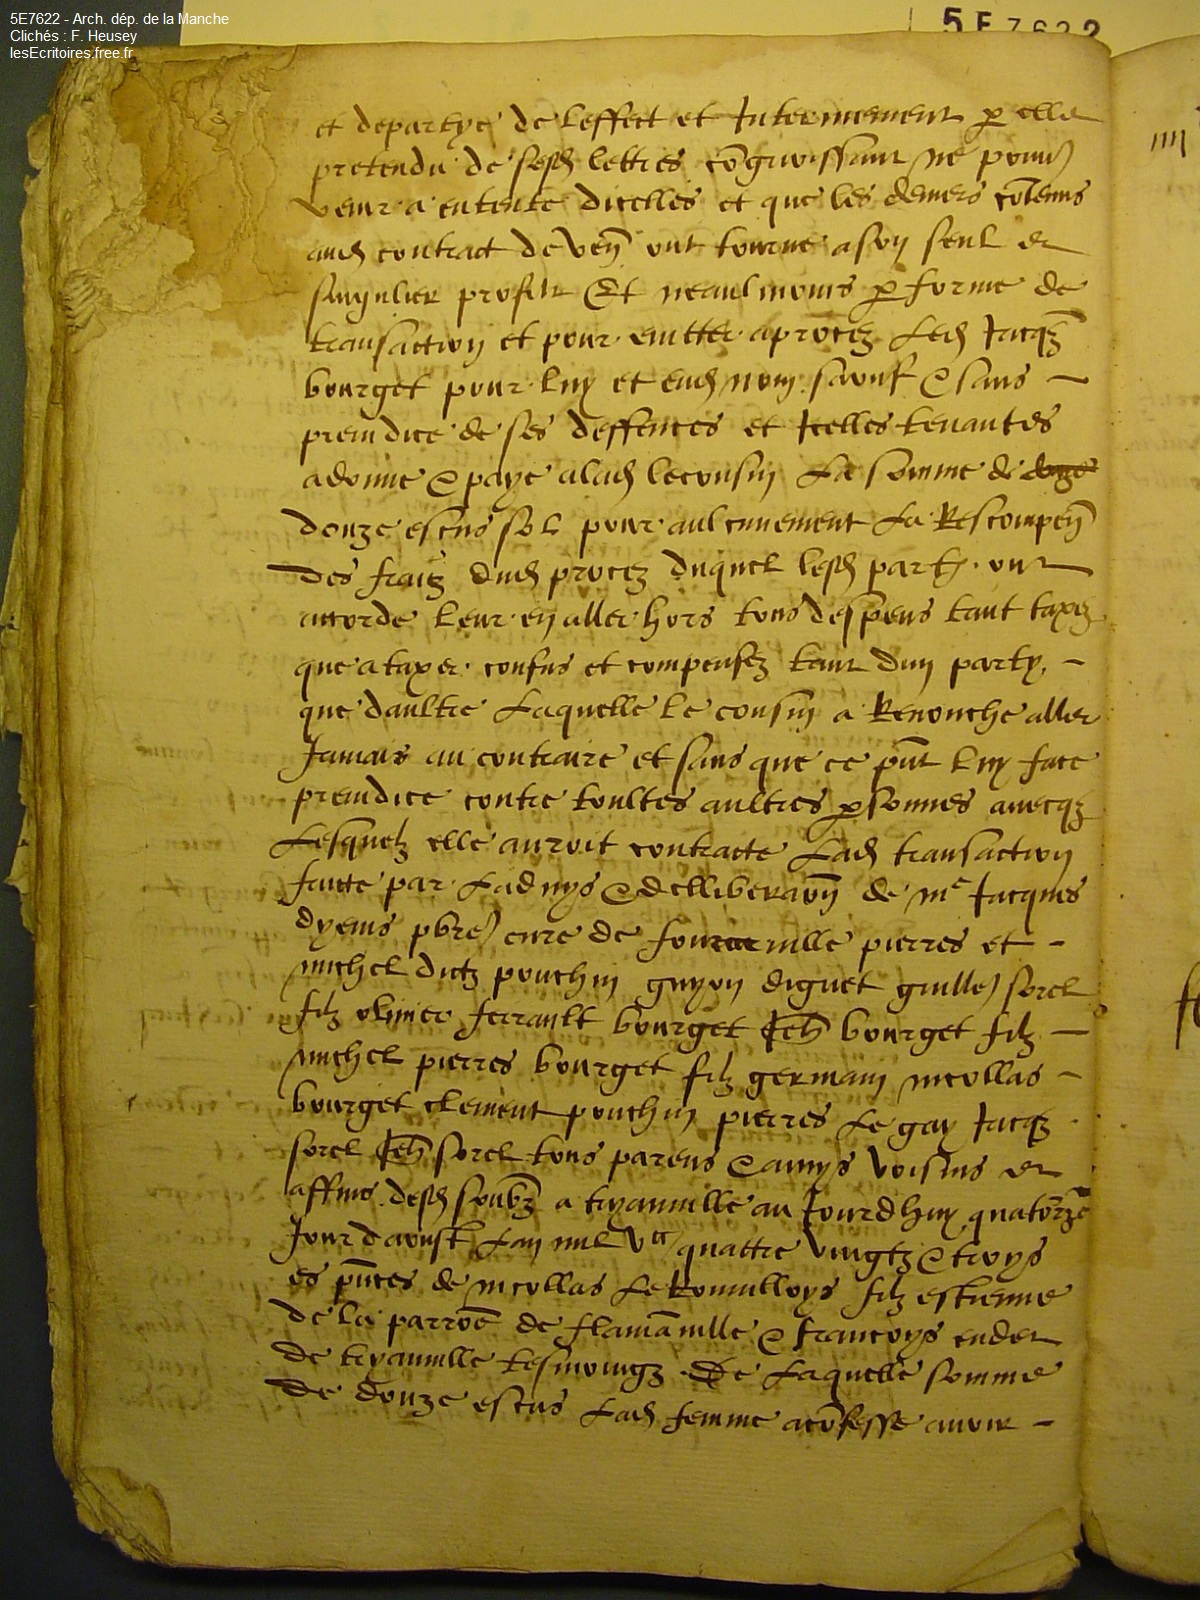 5E7622 - Arch. dép. de la Manche
Clichés : F. Heusey
lesEcritoires.free.fr
5 E 7622
et departye de leffect et Interinement p elle
pretendu de sesd lettres congnoissant ne pouvr
venir a entente dicelles et que les deniers cōtenus
aud contract de ven ont tourne a son seul et
singulier profit Et neaulmoins p forme de
transaction et pour evitter a procez led Jacqz
bourget pour luy et end nom saouf & sans
preiudice de ses deffences et Icelles tenantes
a donne & paye a lad lecousin La somme de
douze escus sol pour aulcunement La Rescompen
des fraiz dud procez duquel lesd part ont
accorde leur en aller hors tous despens tant taxez
que a taxer confus et compensez tant dun party
que daultre Laquelle le cousin a Renonche aller
Jamais au contraire et sans que ce pnt luy face
preiudice contre toultes aultres psonnes avecqz
Lesquelz elle auroit contracte Lad transaction
faicte par Ladvys & delliberaon de me Jacques
dyenis pbre cure de ville pierres et
michel dictz pouchin guyon diguet guille sorel
filz olivier ferrault bourget Jeh bourget filz
michel pierres bourget filz germain nicollas
bourget clement pouchin pierres Le gay Jacqz
sorel Jeh sorel tous parens & amys voisins et
affins desd soubz a tryauville au Jourdhuy quatorze
Jour daoust Lan mil Vcc quattre vingtz & troys
es pnces de nicollas Le Roumilloys filz estienne
de la parroe de flamāville & francoys
de tryauville tesmoingz De Laquelle somme
de douze escus Lad femme a cōfesse avoir